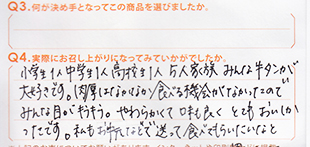 Q3.何が決め手となってこの商品を選びましたか。
Q4.実際にお召し上がりになってみていかがでしたか。
小学生1人 中学生1人 高校生1人 5人家族 みんな牛タンが
大好きです。肉厚はなかなか食べる機会がなかったので
みんな目がキラキラ。やわらかくて味も良く とてもおいしか
ったです。私もお中元などで送って食べてもらいたいなと